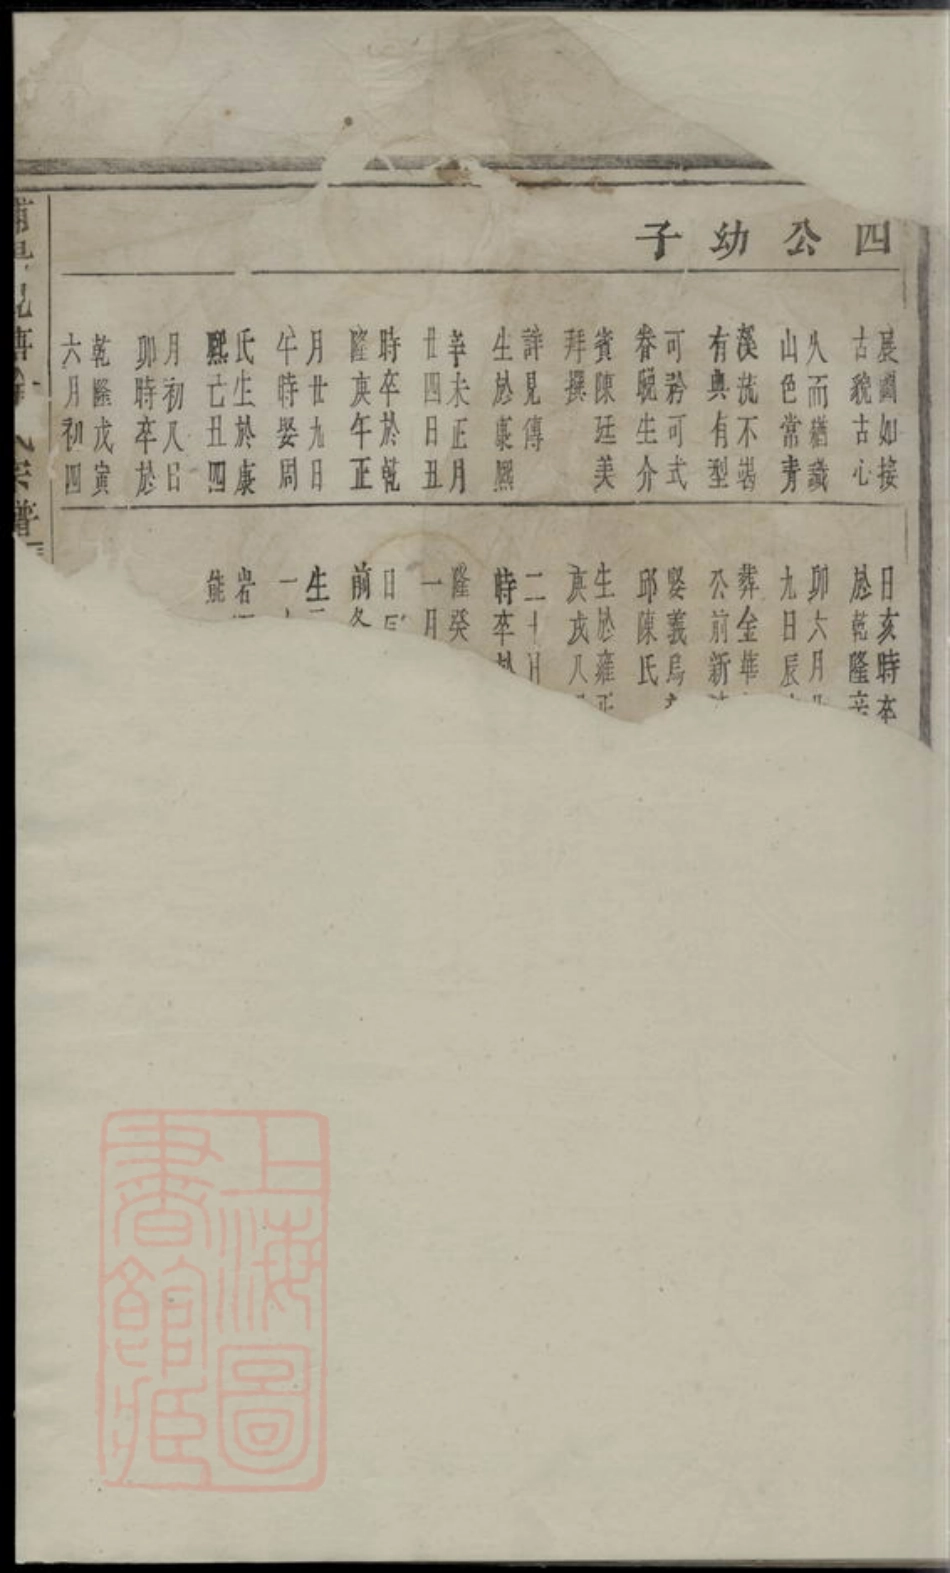 四公幼子
晨國如接
古貌古心
久而猶識
山色常青
溪流不竭
有典有型
可矜可式
眷晚生介
賓陳廷美
拜撰
詳見傳
生於康熙
辛未正月
廿四日丑
時卒於乾
隆庚午正
月廿九日
午時娶周
氏生於康
熙己丑四
月初八日
卯時卒於
乾隆戊寅
六月初四
日亥時卒
於乾隆辛
卯六月
九日辰
葬金華
公前新
娶義烏
邱陳氏
生於雍正
庚戌八
二十日
時卒於
隆癸
一月
日辰
前冬
生
一
岩
熊
宗譜
上海圖書館藏